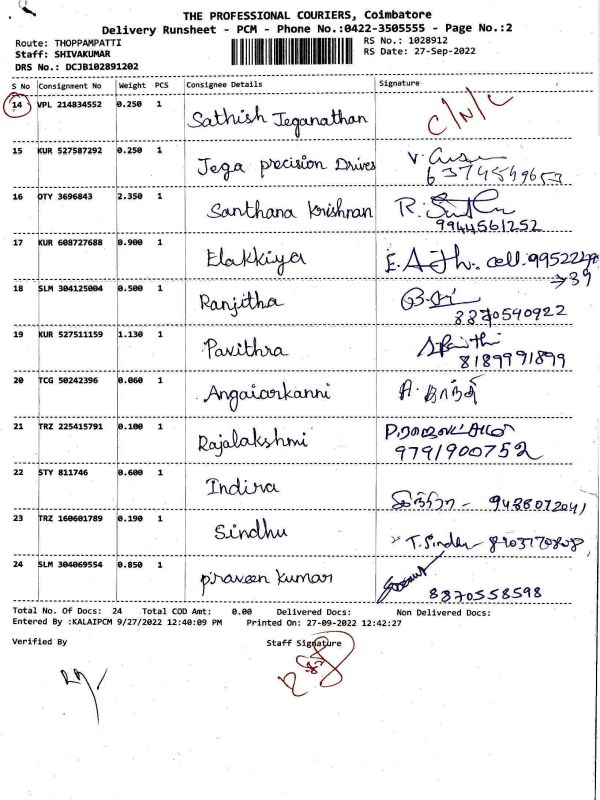 THE PROFESSIONAL COURIERS, Coimbatore
Delivery Runsheet - PCM - Phone No.:0422-3505555 - Page No.:2
Route: THOPPAMPATTI RS No.: 1028912
Staff: SHIVAKUMAR RS Date: 27-Sep-2022
DRS No.: DCJB102891202
S No Consignment No Weight PCS Consignee Details Signature
14 VPL 214834552 0.250 1 Sathish Jeganathan C/N/C
15 KUR 527587292 0.250 1 Jega precision Drives
16 OTY 3696843 2.350 1 Santhana Krishnan
9944561252
17 KUR 608727688 0.900 1 Elakkiya cell.
18 SLM 304125004 0.500 1 Ranjitha
8870590922
19 KUR 527511159 1.130 1 Pavithra
8189991899
20 TCG 50242396 0.060 1 Angaiarkanni
21 TRZ 225415791 0.100 1 Rajalakshmi
9791900752
22 STY 811746 0.600 1 Indira இந்திரா -
23 TRZ 160601789 0.190 1 Sindhu
24 SLM 304069554 0.850 1 praveen kumar
8870558598
Total No. Of Docs: 24 Total COD Amt: 0.00 Delivered Docs: Non Delivered Docs:
Entered By :KALAIPCM 9/27/2022 12:40:09 PM Printed On: 27-09-2022 12:42:27
Verified By Staff Signature